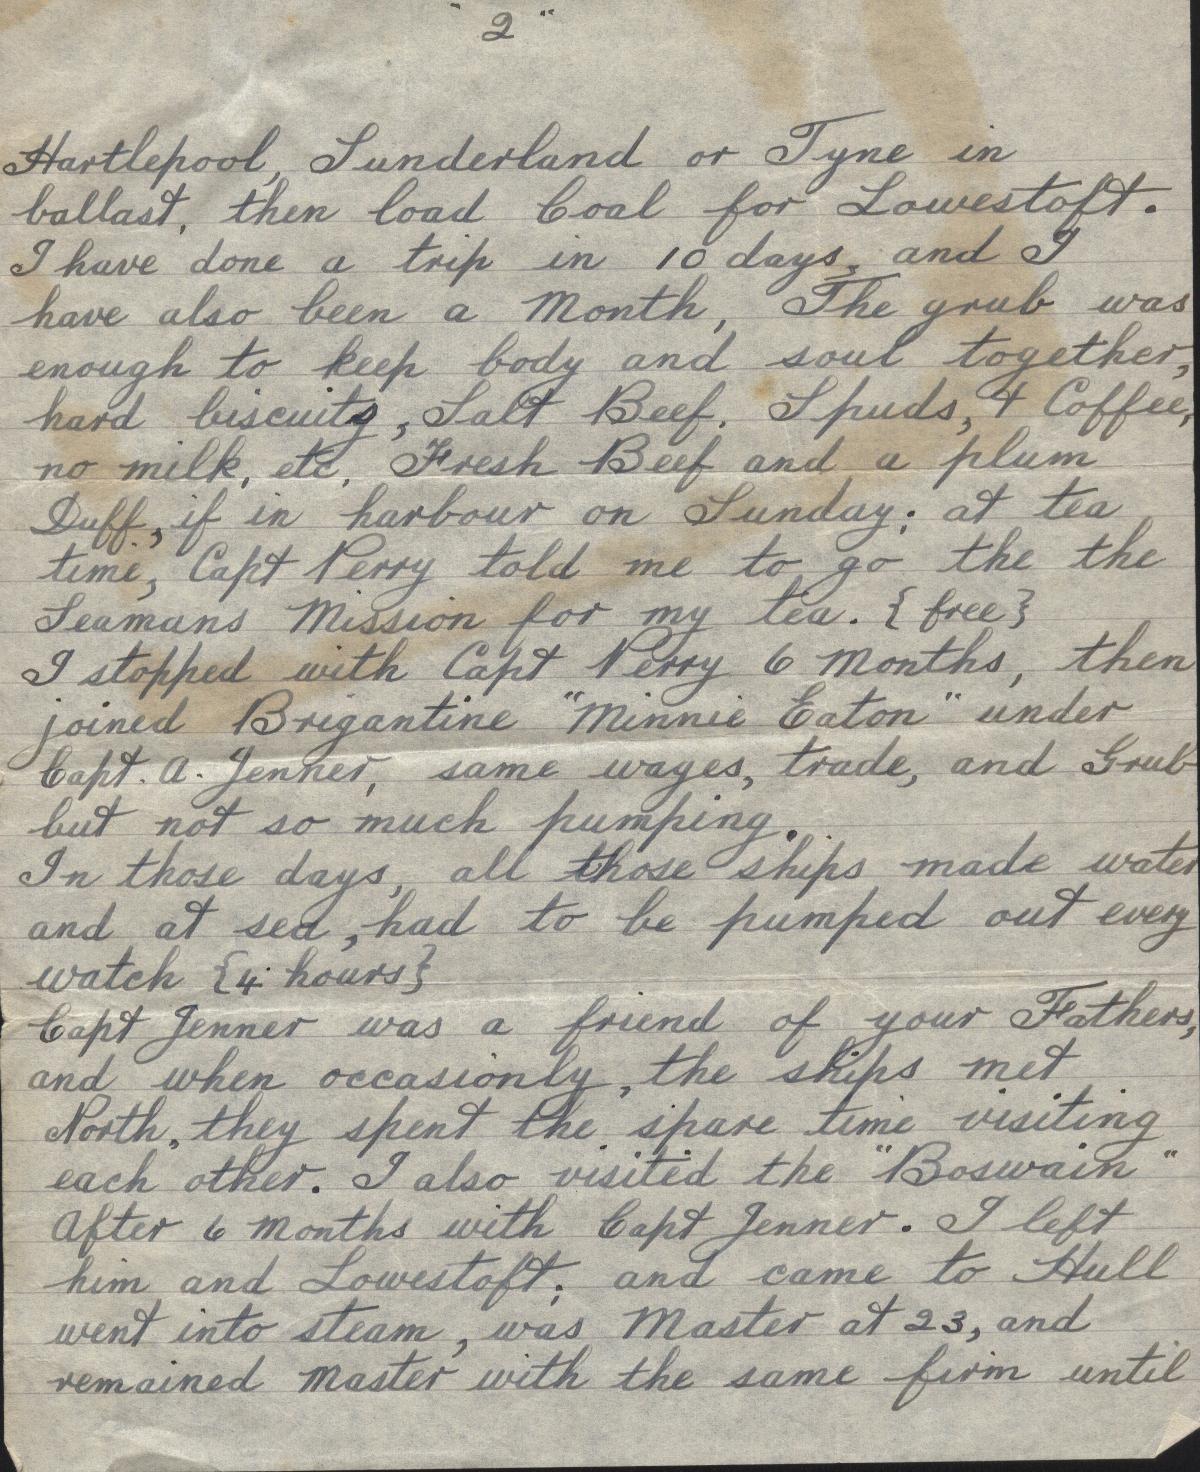 "2"
Hartlepool, Sunderland or Tyne in
ballast, then load Coal for Lowestoft.
I have done a trip in 10 days, and I
have also been a Month, The grub was
enough to keep body and soul together,
hard biscuits, Salt Beef, Spuds, & Coffee,
no milk, etc, Fresh Beef and a plum
Duff, if in harbour on Sunday; at tea
time, Capt Perry told me to go the the
Seamans Mission for my tea. {free}
I stopped with Capt Perry 6 Months, then
joined Brigantine "Minnie Eaton" under
Capt. A. Jenner, same wages, trade, and Grub
but not so much pumping.
In those days, all those ships made water
and at sea, had to be pumped out every
watch {4 hours}
Capt Jenner was a friend of your Fathers,
and when occasionly, the ships met
North, they spent the spare time visiting
each other. I also visited the "Boswain"
After 6 Months with Capt Jenner. I left
him and Lowestoft; and came to Hull
went into steam, was Master at 23, and
remained Master with the same firm until